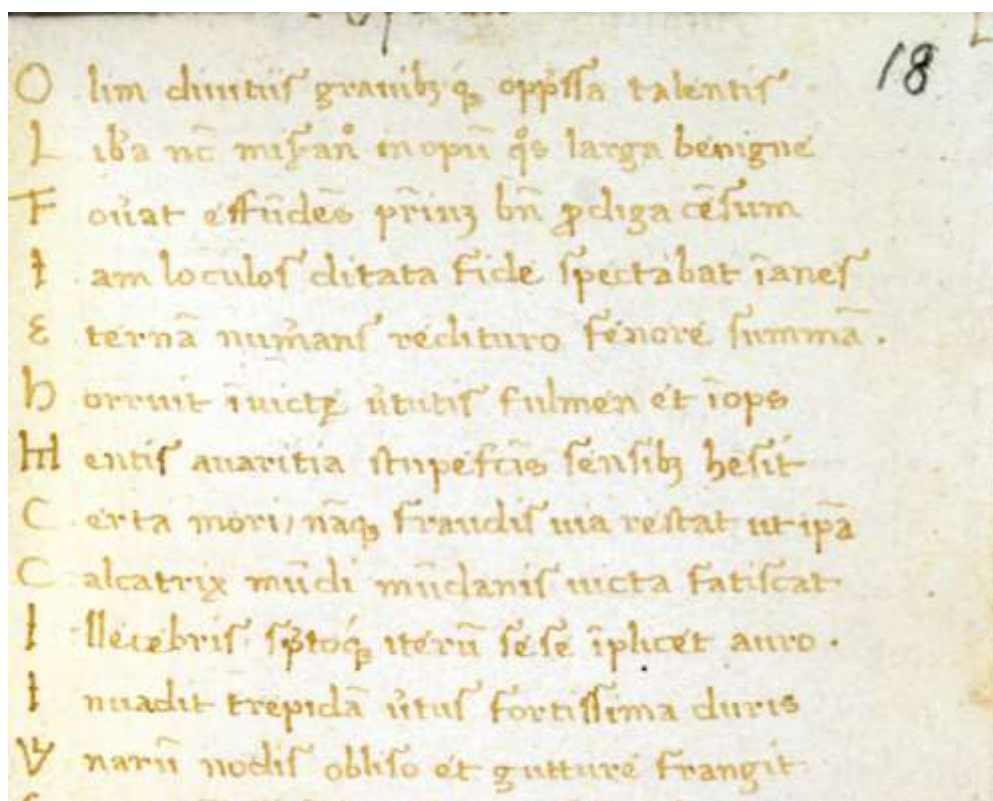 18
O lim diuitiis grauibꝫ q̨ opp̄ssa talentis
L ib̓a nc̄ mis̓ans̓ inopū q̊s larga benigne
F ou̓at effūdēs pr̄iuꝫ bn̄ ꝓdiga cēsum
I am loculos ditata fide spectabat īanes
E ternā num̓ans redituro fenore summā .
h orruit īuictę u̓tutis fulmen et īops
M entis auaritia stupefc̄is sensibꝫ hesit
C erta mori / nāqꝫ fraudis uia restat ut ip̄a
C alcatrix mūdi mūdanis uicta fatiscat
I llecebris sp̄toqꝫ iterū sese īplicet auro .
I nuadit trepidā u̓tus fortissima duris
V narū nodis obliso et gutture frangit